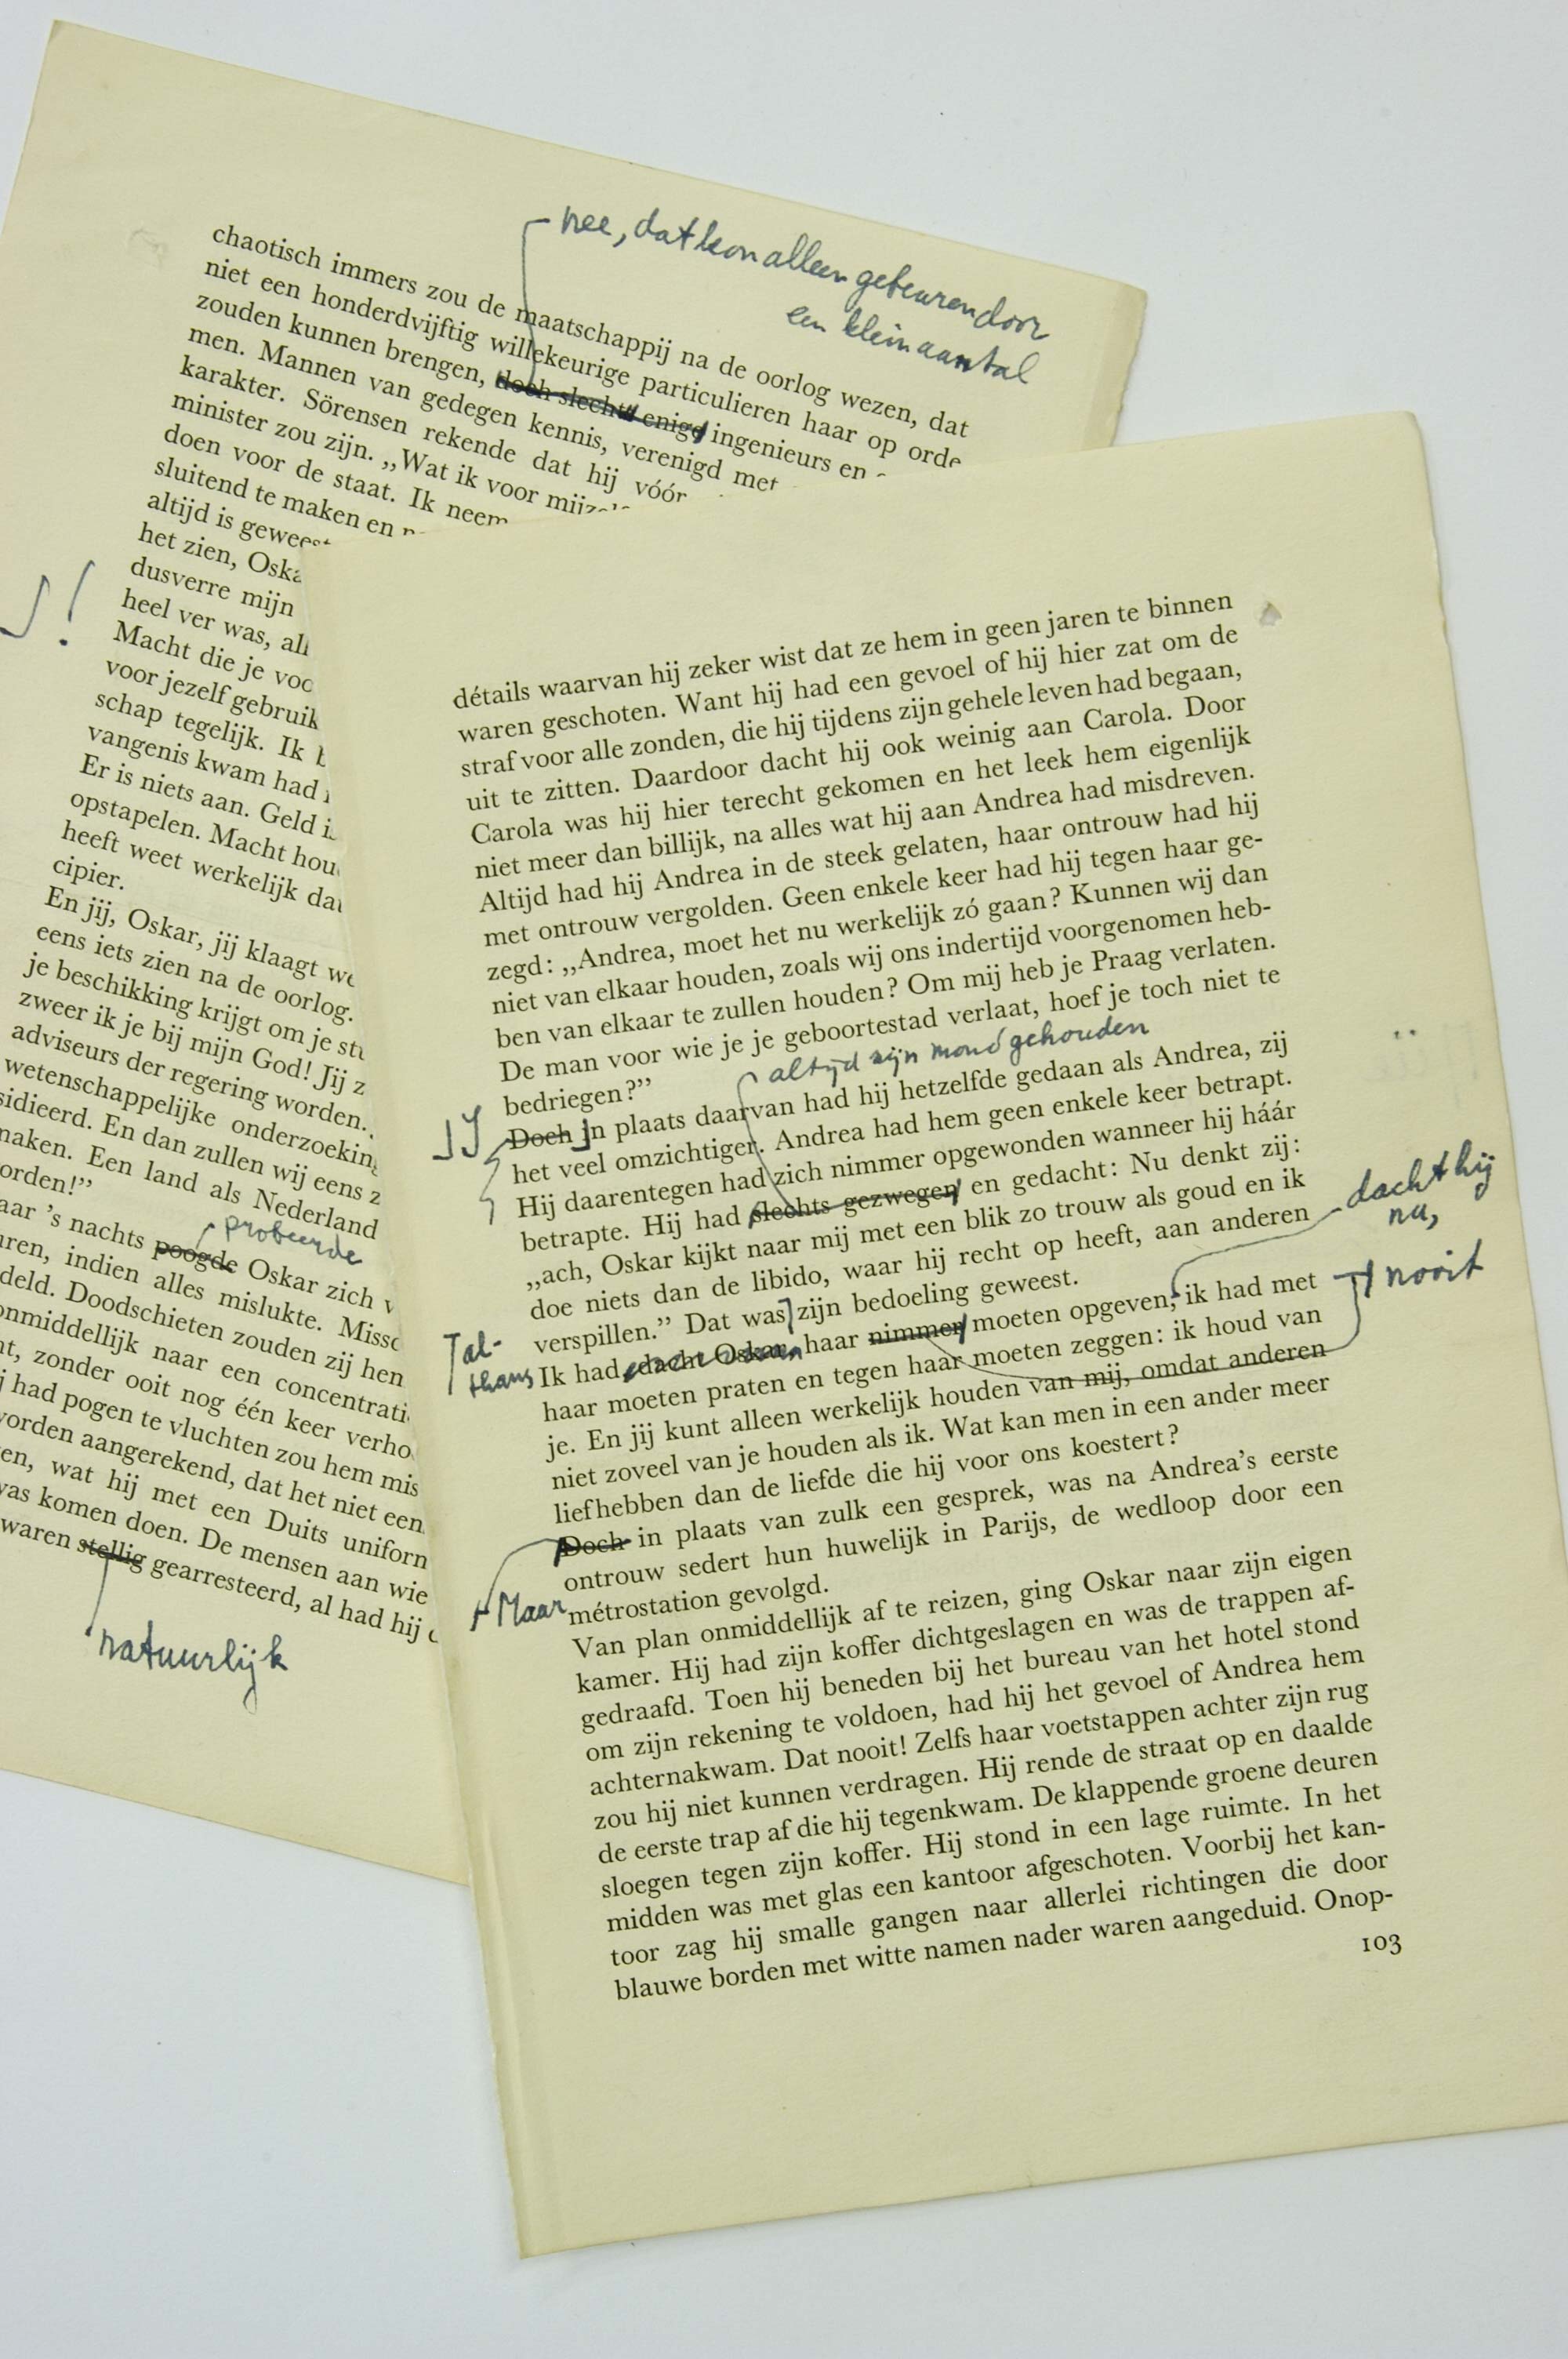 nee, dat kon alleen gebeuren door
een klein aantal
chaotisch immers zou de maatschappij na de oorlog wezen, dat
niet een honderdvijftig willekeurige particulieren haar op orde
zouden kunnen brengen, doch slechts enige ingenieurs en
men. Mannen van gedegen kennis, verenigd met
karakter. Sörensen rekende dat hij vóór
minister zou zijn. „Wat ik voor mijz
doen voor de staat. Ik neem
sluitend te maken en
altijd is geweest
het zien, Oska
dusverre mijn
!
heel ver was, all
Macht die je voo
voor jezelf gebruik
schap tegelijk. Ik
vangenis kwam had
Er is niets aan. Geld is
opstapelen. Macht hou
heeft weet werkelijk dat
cipier.
En jij, Oskar, jij klaagt we
eens iets zien na de oorlog.
je beschikking krijgt om je stu
zweer ik je bij mijn God! Jij z
adviseurs der regering worden.
wetenschappelijke onderzoeking
sidieerd. En dan zullen wij eens z
maken. Een land als Nederland
orden!”
probeerde
aar ’s nachts poogde Oskar zich v
uren, indien alles mislukte. Missc
deld. Doodschieten zouden zij hen
onmiddellijk naar een concentrati
nt, zonder ooit nog één keer verho
j had pogen te vluchten zou hem mis
vorden aangerekend, dat het niet een
en, wat hij met een Duits uniform
was komen doen. De mensen aan wie
waren stellig gearresteerd, al had hij
natuurlijk
détails waarvan hij zeker wist dat ze hem in geen jaren te binnen
waren geschoten. Want hij had een gevoel of hij hier zat om de
straf voor alle zonden, die hij tijdens zijn gehele leven had begaan,
uit te zitten. Daardoor dacht hij ook weinig aan Carola. Door
Carola was hij hier terecht gekomen en het leek hem eigenlijk
niet meer dan billijk, na alles wat hij aan Andrea had misdreven.
Altijd had hij Andrea in de steek gelaten, haar ontrouw had hij
met ontrouw vergolden. Geen enkele keer had hij tegen haar ge-
zegd: „Andrea, moet het nu werkelijk zó gaan? Kunnen wij dan
niet van elkaar houden, zoals wij ons indertijd voorgenomen heb-
ben van elkaar te zullen houden? Om mij heb je Praag verlaten.
De man voor wie je je geboortestad verlaat, hoef je toch niet te
bedriegen?”
altijd zijn mond gehouden
Doch In plaats daarvan had hij hetzelfde gedaan als Andrea, zij
het veel omzichtiger. Andrea had hem geen enkele keer betrapt.
Hij daarentegen had zich nimmer opgewonden wanneer hij háár
betrapte. Hij had slechts gezwegen en gedacht: Nu denkt zij:
„ach, Oskar kijkt naar mij met een blik zo trouw als goud en ik
doe niets dan de libido, waar hij recht op heeft, aan anderen
dacht hij
nu,
verspillen.” Dat was zijn bedoeling geweest.
al-
thans
Ik had, dacht Oskar, haar nimmer moeten opgeven, ik had met
nooit
haar moeten praten en tegen haar moeten zeggen: ik houd van
je. En jij kunt alleen werkelijk houden van mij, omdat anderen
niet zoveel van je houden als ik. Wat kan men in een ander meer
liefhebben dan de liefde die hij voor ons koestert?
Doch in plaats van zulk een gesprek, was na Andrea’s eerste
Maar
ontrouw sedert hun huwelijk in Parijs, de wedloop door een
métrostation gevolgd.
Van plan onmiddellijk af te reizen, ging Oskar naar zijn eigen
kamer. Hij had zijn koffer dichtgeslagen en was de trappen af-
gedraafd. Toen hij beneden bij het bureau van het hotel stond
om zijn rekening te voldoen, had hij het gevoel of Andrea hem
achternakwam. Dat nooit! Zelfs haar voetstappen achter zijn rug
zou hij niet kunnen verdragen. Hij rende de straat op en daalde
de eerste trap af die hij tegenkwam. De klappende groene deuren
sloegen tegen zijn koffer. Hij stond in een lage ruimte. In het
midden was met glas een kantoor afgeschoten. Voorbij het kan-
toor zag hij smalle gangen naar allerlei richtingen die door
blauwe borden met witte namen nader waren aangeduid. Onop-
103